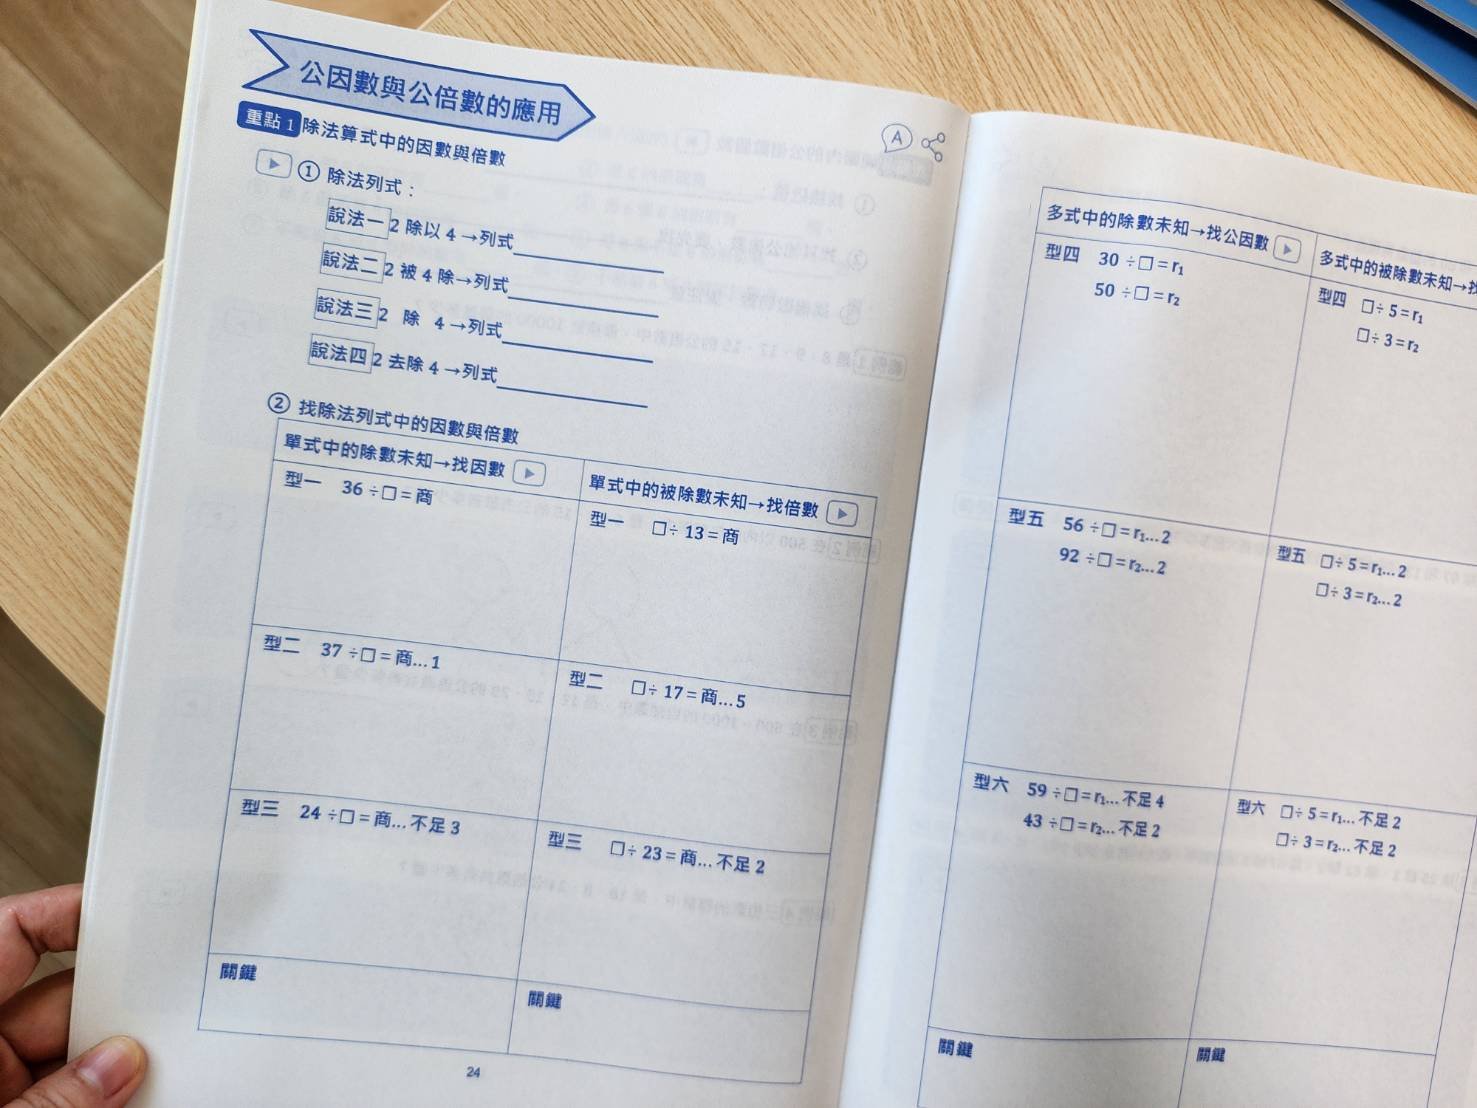 公因數與公倍數的應用
重點 1 除法算式中的因數與倍數
① 除法列式：
說法一 2 除以 4→列式
說法二 2 被 4 除→列式
說法三 2 除 4→列式
說法四 2 去除 4→列式
② 找除法列式中的因數與倍數
單式中的除數未知→找因數
型一 36÷□=商
型二 37÷□=商…1
型三 24÷□=商…不足 3
關鍵
單式中的被除數未知→找倍數
型一 □÷13=商
型二 □÷17=商…5
型三 □÷23=商…不足 2
關鍵
24
A
多式中的除數未知→找公因數
型四 30÷□=r₁
50÷□=r₂
型五 56÷□=r₁…2
92÷□=r₂…2
型六 59÷□=r₁…不足 4
43÷□=r₂…不足 2
關鍵
多式中的被除數未知→找
型四 □÷5=r₁
□÷3=r₂
型五 □÷5=r₁…2
□÷3=r₂…2
型六 □÷5=r₁…不足 2
□÷3=r₂…不足 2
關鍵